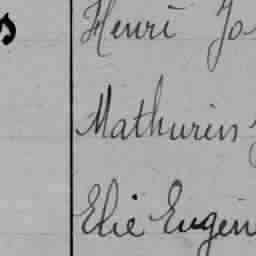 s Henri Jo
Mathurin
Elie Eugèn